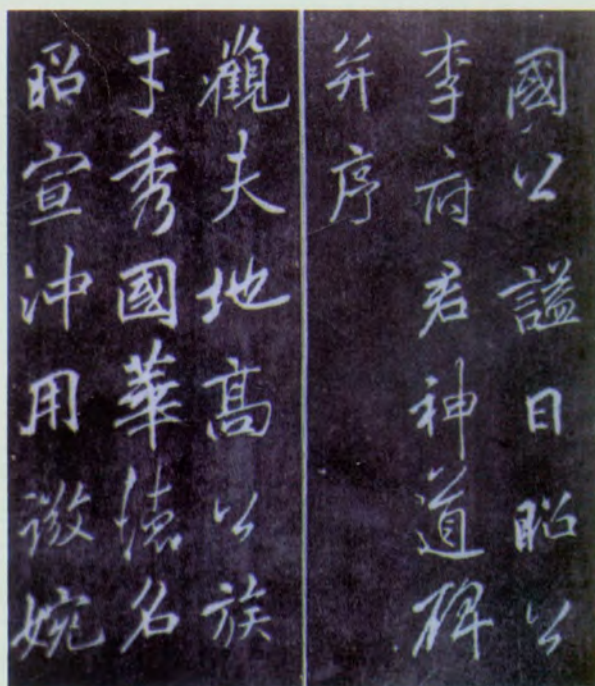 國公謚曰昭公
李府君神道碑
并序
觀夫地高公族
才秀國華德名
昭宣沖用微婉